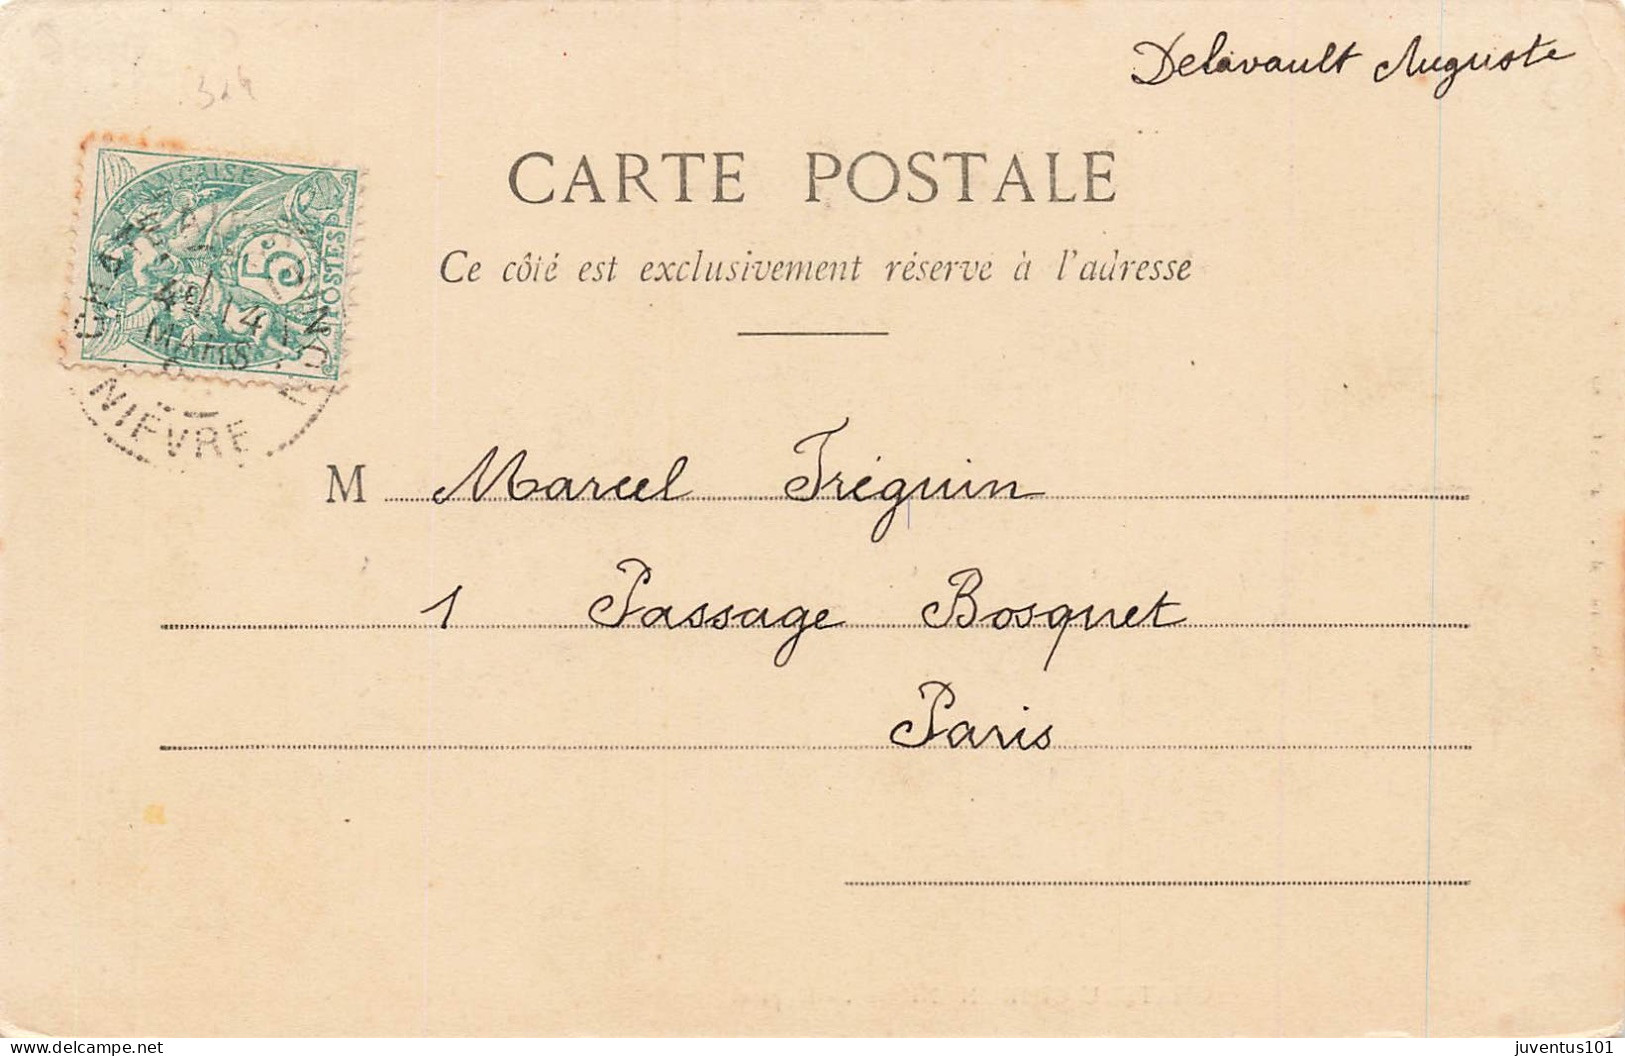 Delavault Auguste
324
CARTE POSTALE
Ce côté est exclusivement réservé à l'adresse
FRANÇAISE
5
POSTES
14
MARS
NIÈVRE
M Marcel Tréguin
1 Passage Bosquet
Paris
www.delcampe.net
juventus101